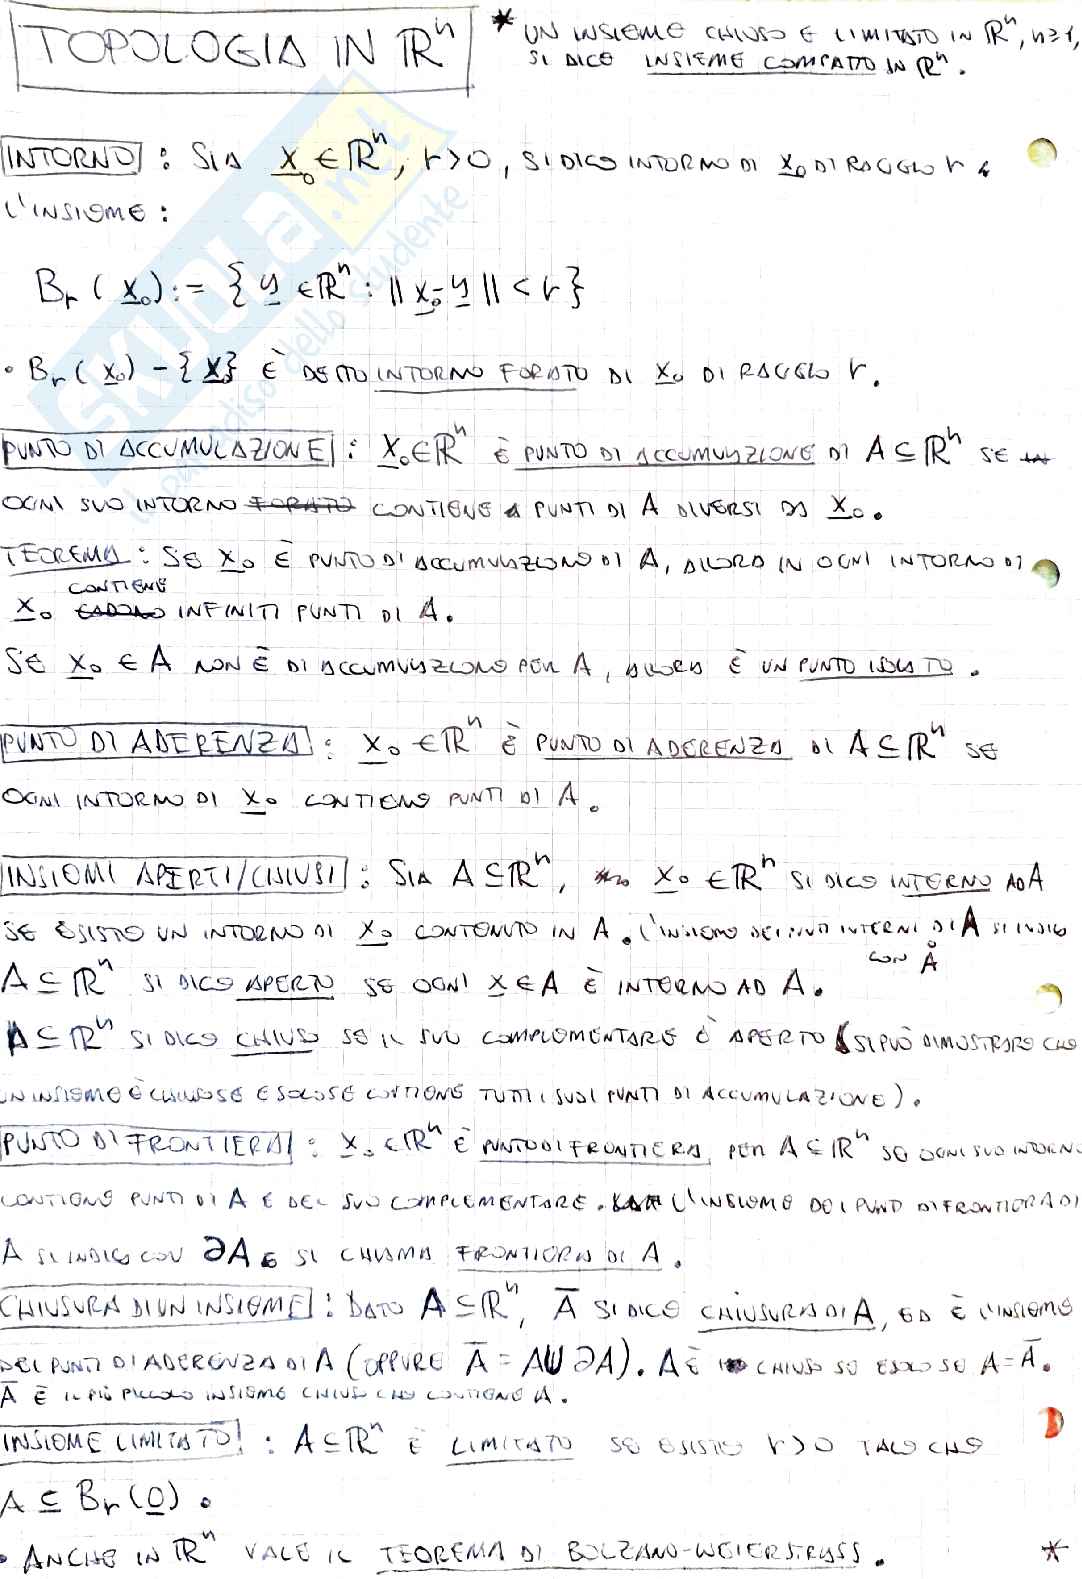 TOPOLOGIA IN ℝⁿ
* UN INSIEME CHIUSO E LIMITATO IN ℝⁿ, n≥1,
SI DICE INSIEME COMPATTO IN ℝⁿ.
INTORNO: SIA x₀ ∈ ℝⁿ, r>0, SI DICE INTORNO DI x₀ DI RAGGIO r
L'INSIEME:
Bᵣ(x₀) := { y ∈ ℝⁿ : ‖x₀-y‖ < r }
• Bᵣ(x₀) - {x} È DETTO INTORNO FORATO DI x₀ DI RAGGIO r.
PUNTO DI ACCUMULAZIONE: x₀ ∈ ℝⁿ È PUNTO DI ACCUMULAZIONE DI A ⊆ ℝⁿ SE
OGNI SUO INTORNO FORATO CONTIENE PUNTI DI A DIVERSI DA x₀.
TEOREMA: SE x₀ È PUNTO DI ACCUMULAZIONE DI A, ALLORA IN OGNI INTORNO DI
CONTIENE
x₀ CADONO INFINITI PUNTI DI A.
SE x₀ ∈ A NON È DI ACCUMULAZIONE PER A, ALLORA È UN PUNTO ISOLATO.
PUNTO DI ADERENZA: x₀ ∈ ℝⁿ È PUNTO DI ADERENZA DI A ⊆ ℝⁿ SE
OGNI INTORNO DI x₀ CONTIENE PUNTI DI A.
INSIEMI APERTI/CHIUSI: SIA A ⊆ ℝⁿ, x₀ ∈ ℝⁿ SI DICE INTERNO AD A
SE ESISTE UN INTORNO DI x₀ CONTENUTO IN A. L'INSIEME DEI PUNTI INTERNI DI A SI INDICA
CON Å
A ⊆ ℝⁿ SI DICE APERTO SE OGNI x ∈ A È INTERNO AD A.
A ⊆ ℝⁿ SI DICE CHIUSO SE IL SUO COMPLEMENTARE È APERTO (SI PUÒ DIMOSTRARE CHE
UN INSIEME È CHIUSO SE E SOLO SE CONTIENE TUTTI I SUOI PUNTI DI ACCUMULAZIONE).
PUNTO DI FRONTIERA: x₀ ∈ ℝⁿ È PUNTO DI FRONTIERA PER A ⊆ ℝⁿ SE OGNI SUO INTORNO
CONTIENE PUNTI DI A E DEL SUO COMPLEMENTARE. L'INSIEME DEI PUNTI DI FRONTIERA DI
A SI INDICA CON ∂A E SI CHIAMA FRONTIERA DI A.
CHIUSURA DI UN INSIEME: DATO A ⊆ ℝⁿ, A̅ SI DICE CHIUSURA DI A, ED È L'INSIEME
DEI PUNTI DI ADERENZA DI A (OPPURE A̅ = A∪∂A). A È CHIUSO SE E SOLO SE A = A̅.
A̅ È IL PIÙ PICCOLO INSIEME CHIUSO CHE CONTIENE A.
INSIEME LIMITATO: A ⊆ ℝⁿ È LIMITATO SE ESISTE r>0 TALE CHE
A ⊆ Bᵣ(0).
• ANCHE IN ℝⁿ VALE IL TEOREMA DI BOLZANO-WEIERSTRASS. *
SKUOLA.net
il paradiso dello studente